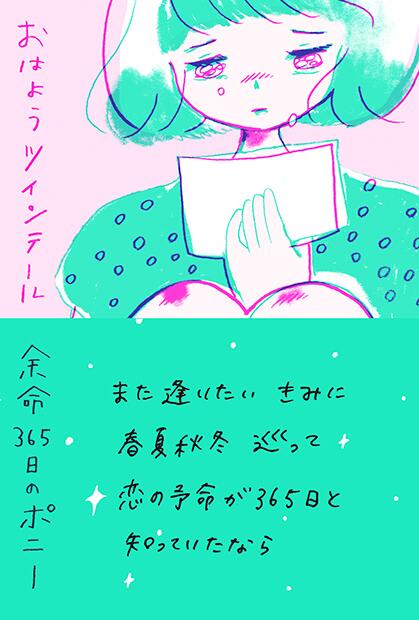 おはようツインテール
余命365日のポニー
また逢いたい きみに
春夏秋冬 巡って
恋の予命が365日と
知っていたなら